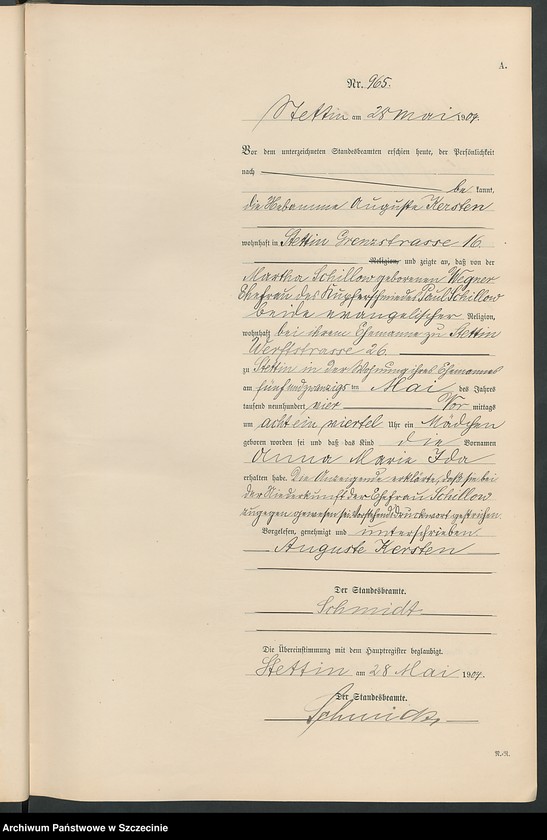 A.
Nr. 965.
Stettin am 28 Mai 1904.
Vor dem unterzeichneten Standesbeamten erschien heute, der Persönlichkeit
nach
be kannt,
die Hebamme Auguste Kersten
wohnhaft in Stettin Grenzstrasse 16.
Religion, und zeigte an, daß von der
Martha Schillow geborenen Wegner
Ehefrau des Kupferschmiedes Paul Schillow
beide evangelischer Religion,
wohnhaft bei ihrem Ehemanne zu Stettin
Werftstrasse 26.
zu Stettin in der Wohnung ihres Ehemannes
am fünfundzwanzigs ten Mai des Jahres
tausend neunhundert vier Vor mittags
um acht ein viertel Uhr ein Mädchen
geboren worden sei und daß das Kind die Vornamen
Anna Marie Ida
erhalten habe. Die Anzeigende erklärte, daß sie bei
der Niederkunft der Ehefrau Schillow
zugegen gewesen sei. Vorstehend 1 Druckwort gestrichen.
Vorgelesen, genehmigt und unterschrieben
Auguste Kersten
Der Standesbeamte.
Schmidt
Die Übereinstimmung mit dem Hauptregister beglaubigt.
Stettin am 28 Mai 1904.
Der Standesbeamte.
Schmidt
N.-R.
Archiwum Państwowe w Szczecinie